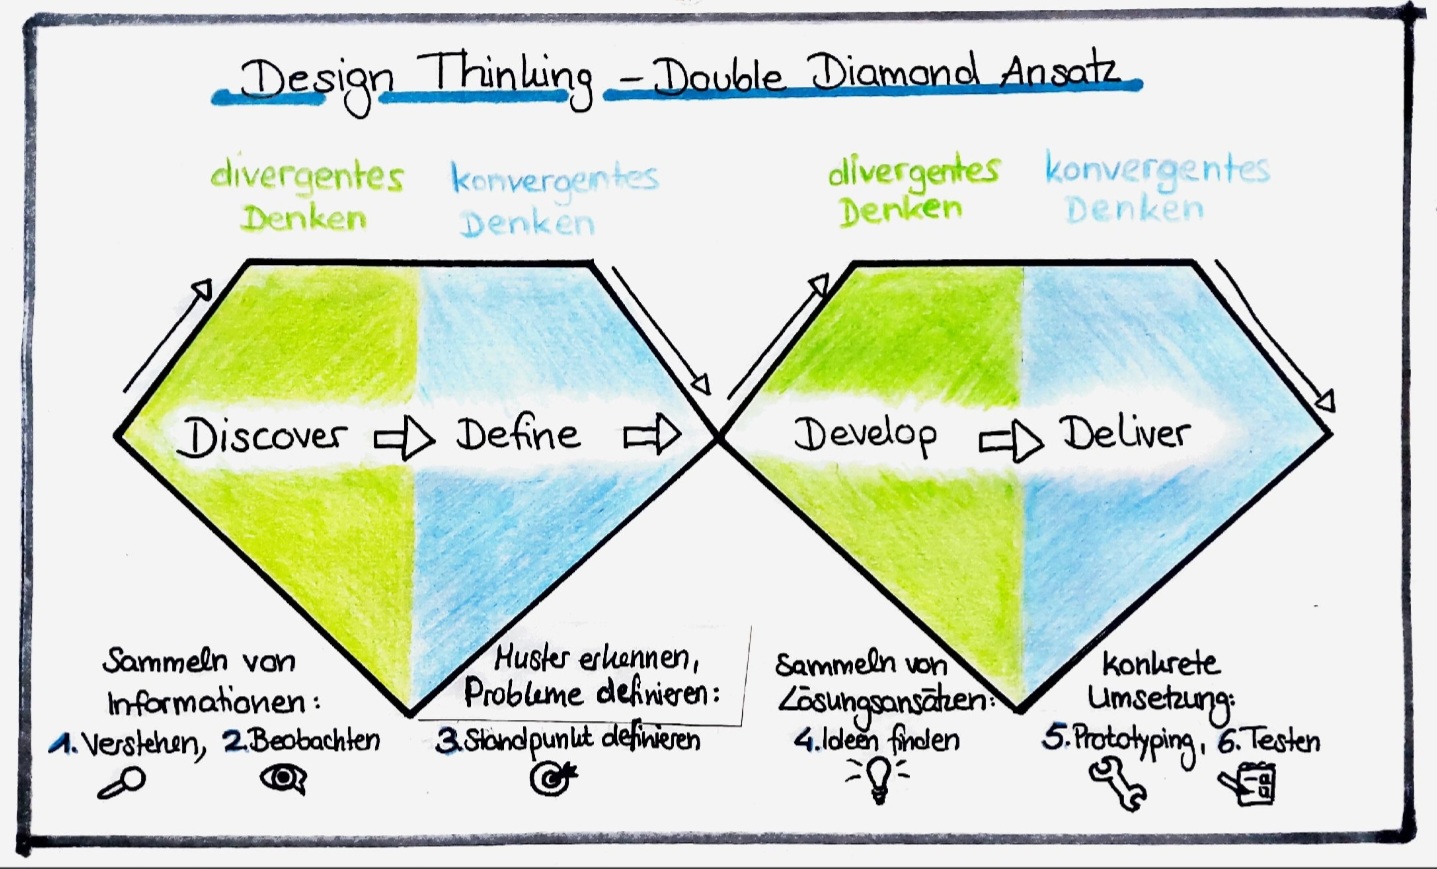 Design Thinking - Double Diamond Ansatz
divergentes
Denken
konvergentes
Denken
divergentes
Denken
konvergentes
Denken
Discover
Define
Develop
Deliver
Sammeln von
Informationen:
1. Verstehen, 2. Beobachten
Muster erkennen,
Probleme definieren:
3. Standpunkt definieren
Sammeln von
Lösungsansätzen:
4. Ideen finden
Konkrete
Umsetzung:
5. Prototyping, 6. Testen